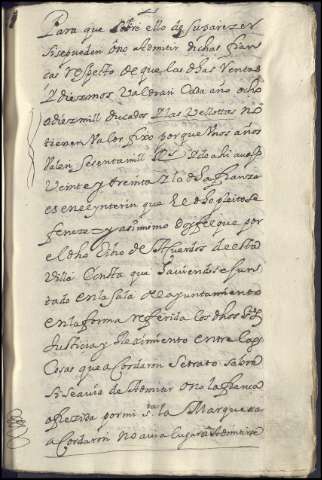 Para que sobre ello de su parezer
si se pueden o no admitir dichas fian
cas respecto de que las dhas Ventas
y diezmos valdran cada año ocho
o diez mill ducados y las Vellottas no
tienen valor fixo porque Unos años
valen sesenta mill
Veinte y treinta y la dha fianza
es en el ynterin que el dho pleito se
feneze = y asimismo doy fee que por
el dho libro de Acuerdos de esta
Villa Consta que haviendose Jun
tado en la sala de ayuntamiento
en la forma referida los dhos
Justicia y Reximiento entre otras
Cosas que acordaron se trato sobre
si se avia de Admitir o no la fianca
ofrezida por mi sra la Marquesa
acordaron no avia lugar a Admitirse